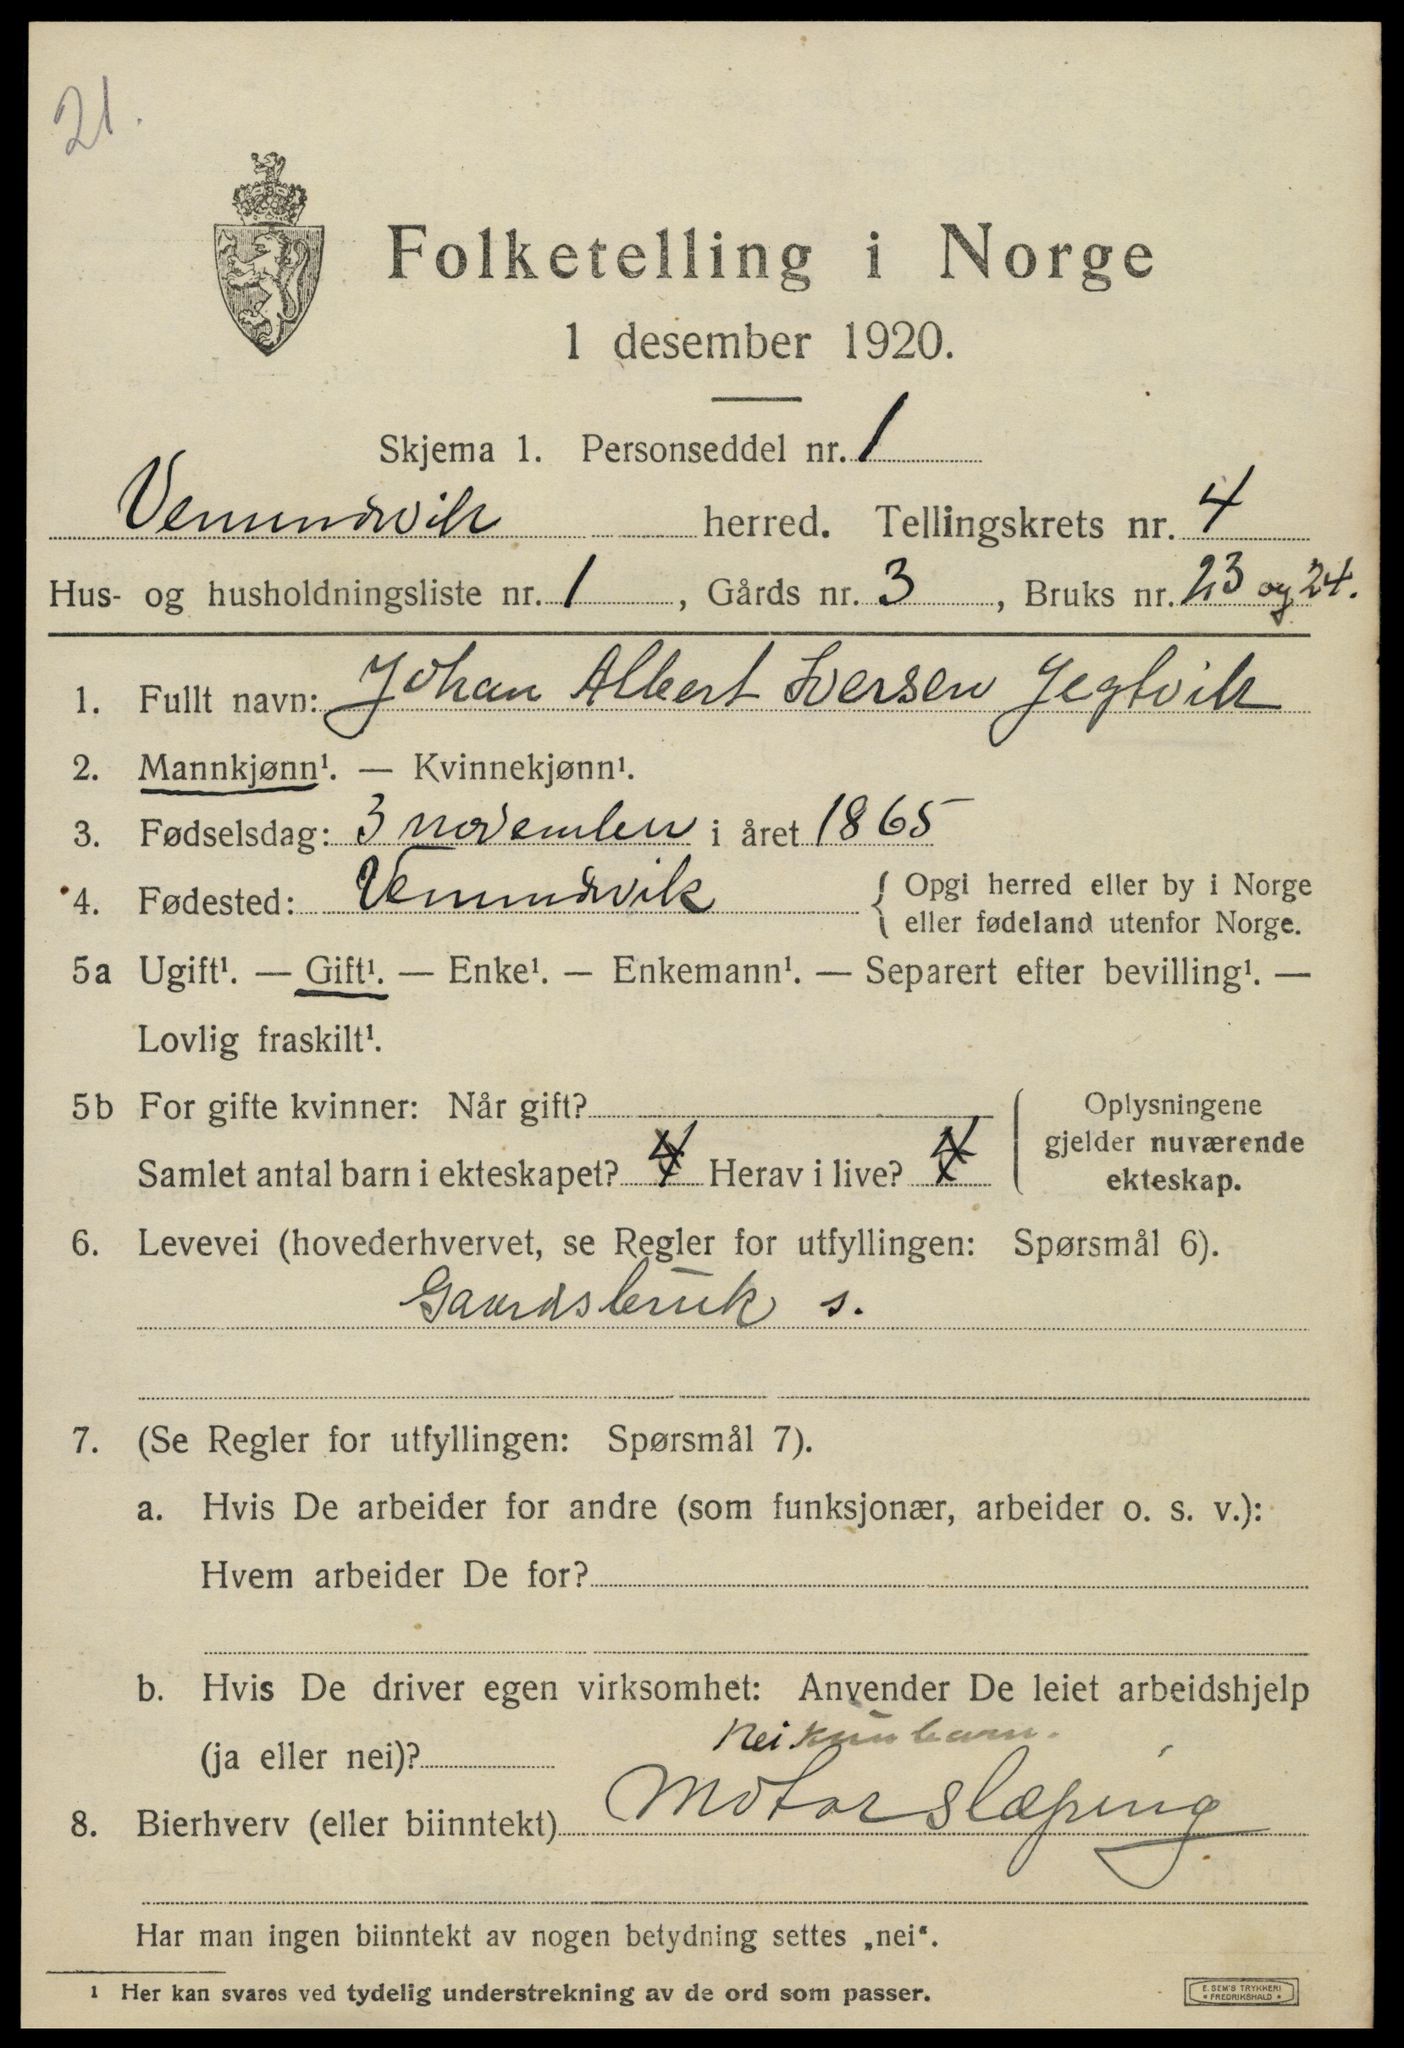 21.
Folketelling i Norge
1 desember 1920.
Skjema 1. Personseddel nr. 1
Vemundvik herred. Tellingskrets nr. 4
Hus- og husholdningsliste nr. 1, Gårds nr. 3, Bruks nr. 23 og 24.
1. Fullt navn: Johan Albert Iversen Jegtvik
2. Mannkjønn¹. — Kvinnekjønn¹.
3. Fødselsdag: 3 november i året 1865
4. Fødested: Vemundvik { Opgi herred eller by i Norge
eller fødeland utenfor Norge.
5a Ugift¹. — Gift¹. — Enke¹. — Enkemann¹. — Separert efter bevilling¹. —
Lovlig fraskilt¹.
5b For gifte kvinner: Når gift?
Samlet antal barn i ekteskapet? 4 Herav i live? 4
Oplysningene
gjelder nuværende
ekteskap.
6. Levevei (hovederhvervet, se Regler for utfyllingen: Spørsmål 6).
Gaardsbruk s.
7. (Se Regler for utfyllingen: Spørsmål 7).
a. Hvis De arbeider for andre (som funksjonær, arbeider o. s. v.):
Hvem arbeider De for?
b. Hvis De driver egen virksomhet: Anvender De leiet arbeidshjelp
(ja eller nei)? Nei kun barn.
8. Bierhverv (eller biinntekt) Motorslæping
Har man ingen biinntekt av nogen betydning settes „nei“.
1 Her kan svares ved tydelig understrekning av de ord som passer.
E. SEM'S TRYKKERI
FREDRIKSHALD